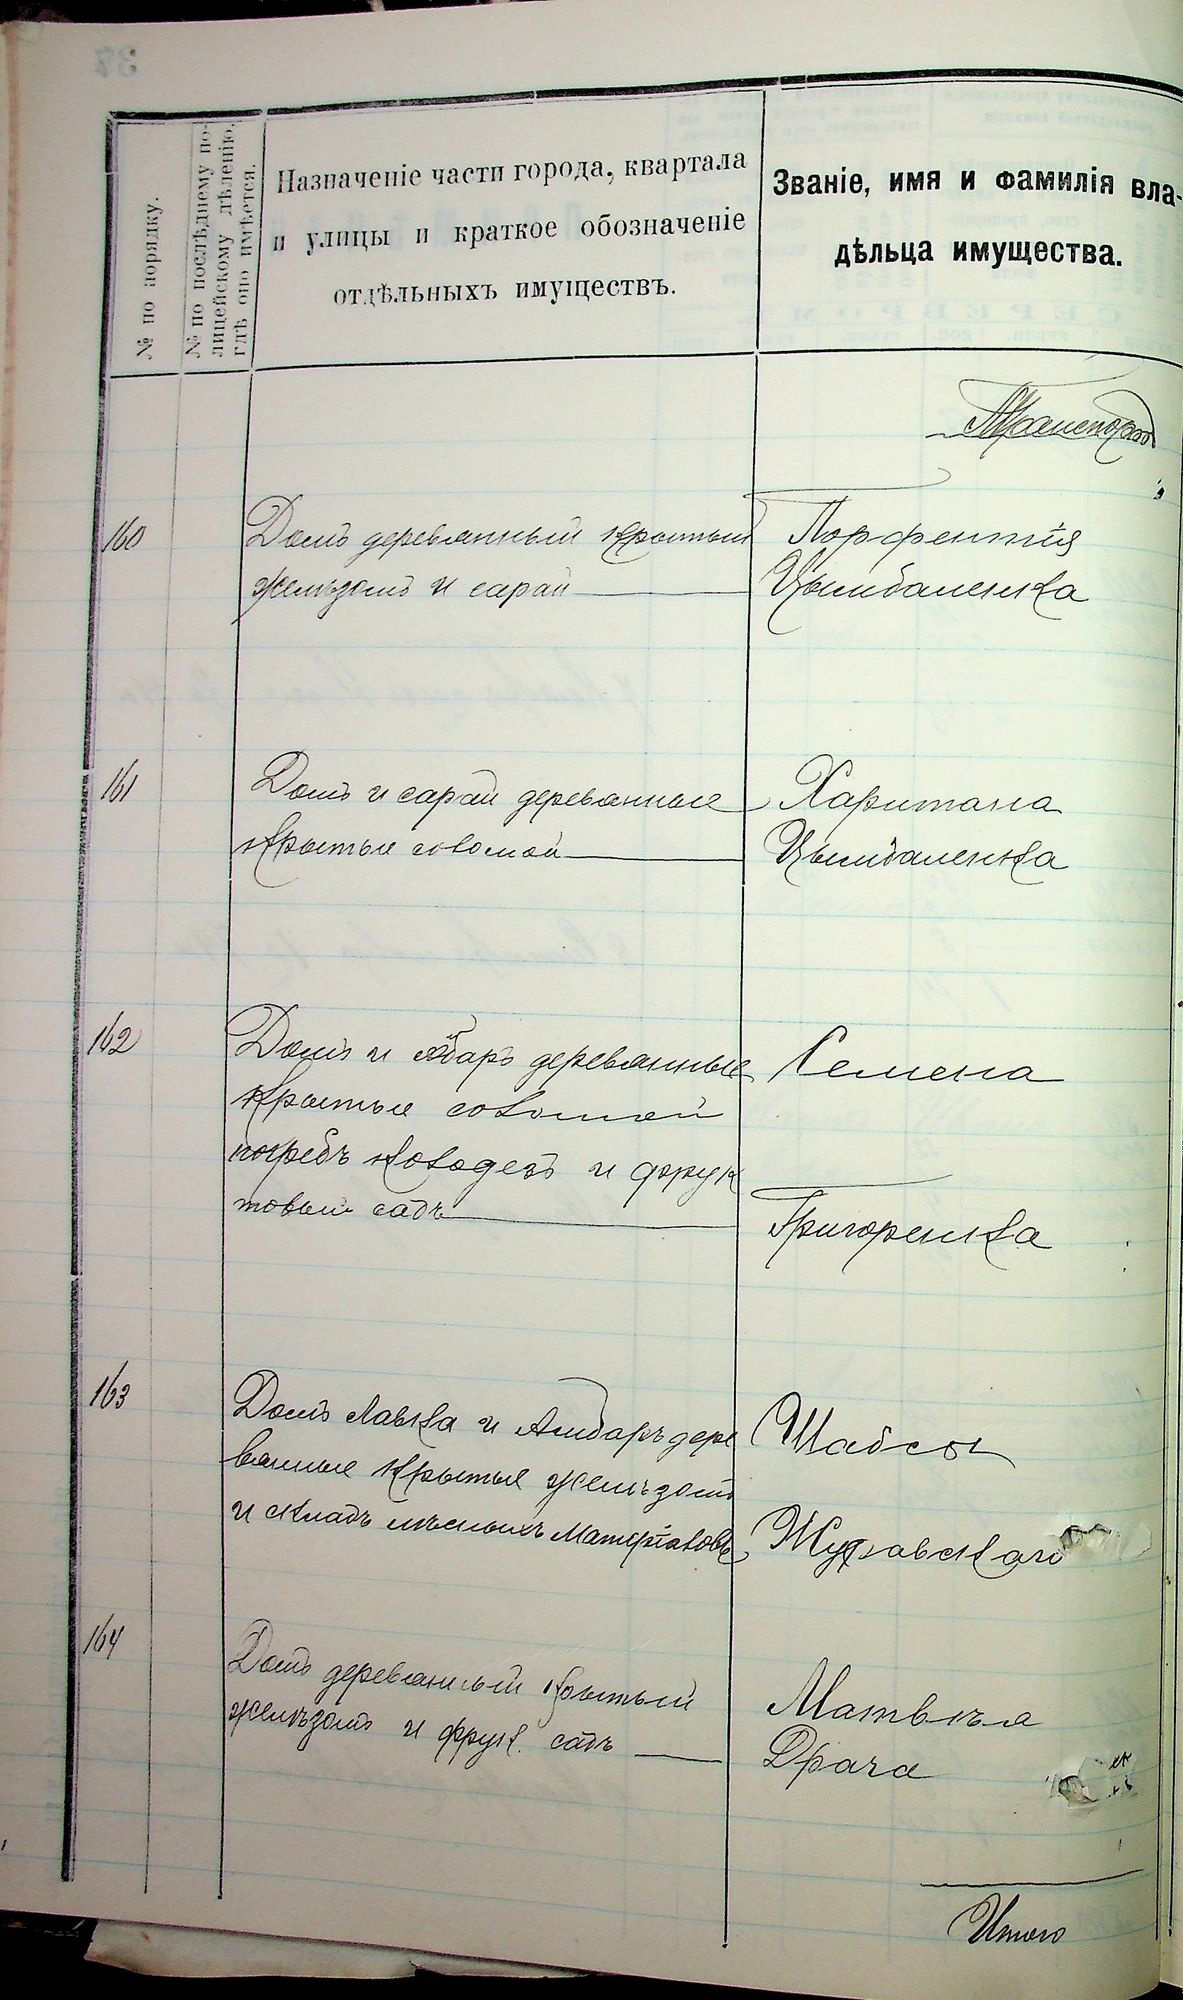 № по порядку.
№ по послѣднему по-
лицейскому дѣленію,
гдѣ оно имѣется.
Назначеніе части города, квартала
и улицы и краткое обозначеніе
отдѣльныхъ имуществъ.
Званіе, имя и фамилія вла-
дѣльца имущества.
Транспортъ
160
Домъ деревянный крытый
желѣзомъ и сарай
Порфентія
Цымбаленка
161
Домъ и сарай деревянные
крытые соломой
Харитона
Цымбаленка
162
Домъ и амбаръ деревянные
крытые соломой
погребъ колодезъ и фрук
товый садъ
Семена
Григоренка
163
Домъ лавка и Амбаръ дере
вянные крытые желѣзомъ
и складъ лѣсныхъ Матеріаловъ
Шабсы
Журавскаго
164
Домъ деревянный крытый
желѣзомъ и фрук. садъ
Матвѣя
Драча
Итого